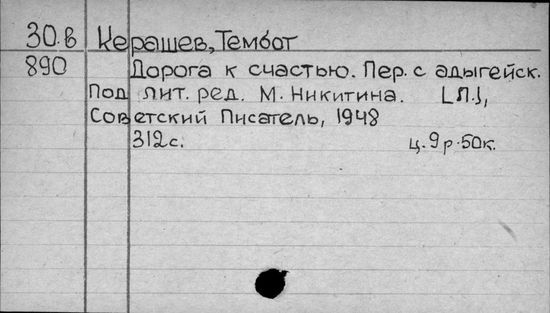 30.в Керашев, Тембот
890 Дорога к счастью. Пер. с адыгейск.
Под лит. ред. М. Никитина. [Л.],
Советский Писатель, 1948
312с. ц. 9р. 50к.